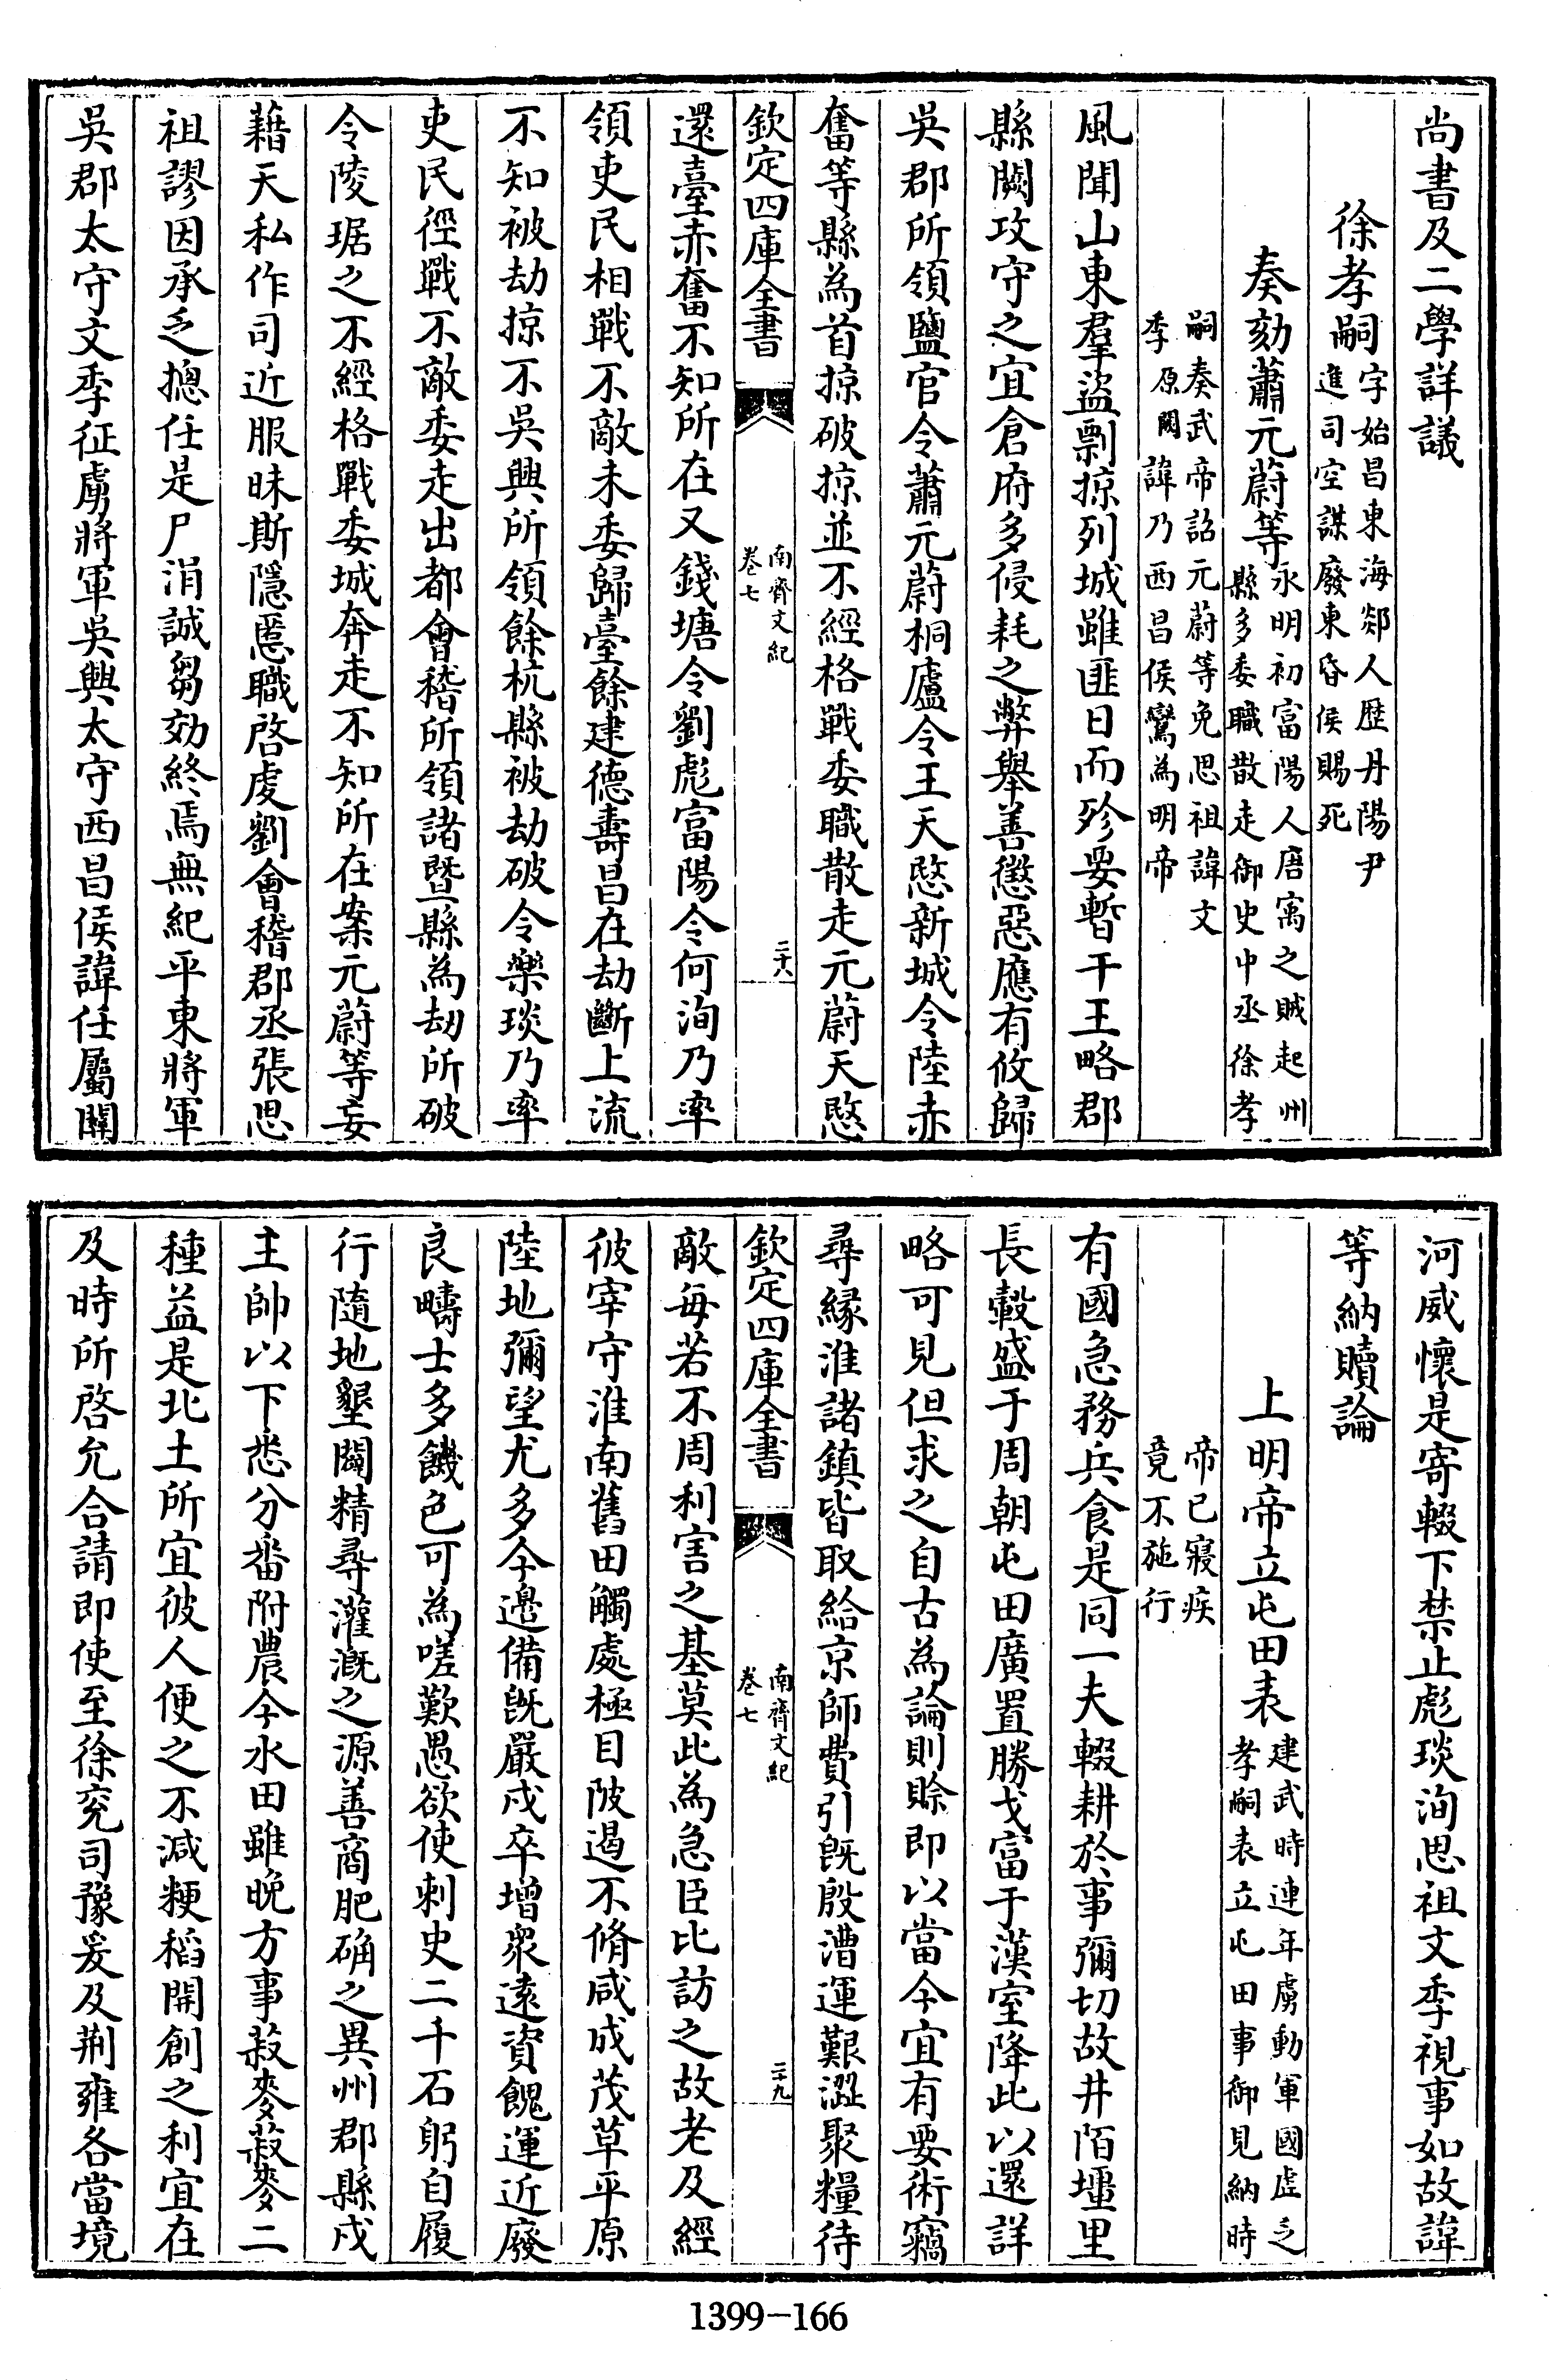 尚書及二學詳議
徐孝嗣字始昌東海郯人歴丹陽尹
進司空謀廢東昏侯賜死
奏劾蕭元蔚等永明初富陽人唐㝢之賊起州
縣多委職散走御史中丞徐孝
嗣奏武帝詔元蔚等免思祖諱文
季原闕諱乃西昌侯鸞為明帝
風聞山東羣盜剽掠列城雖匪日而殄要暫干王略郡
縣闕攻守之宜倉府多侵耗之弊舉善懲惡應有攸歸
吳郡所領鹽官令蕭元蔚桐廬令王天愍新城令陸赤
奮等縣為首掠破掠並不經格戰委職散走元蔚天愍
欽定四庫全書
南齊文紀
卷七
三十八
還臺赤奮不知所在又錢塘令劉彪富陽令何洵乃率
領吏民相戰不敵未委歸臺餘建德壽昌在劫斷上流
不知被劫掠不吳興所領餘杭縣被劫破令樂琰乃率
吏民徑戰不敵委走出都會稽所領諸暨縣為劫所破
令陵琚之不經格戰委城奔走不知所在案元蔚等妄
藉天私作司近服昧斯隱慝職啓虔劉會稽郡丞張思
祖謬因承乏摠任是尸涓誠芻効終焉無紀平東將軍
吳郡太守文季征虜將軍吳興太守西昌侯諱任屬關
河威懷是寄輟下禁止彪琰洵思祖文季視事如故諱
等納贖論
上明帝立屯田表建武時連年虜動軍國虛乏
孝嗣表立屯田事御見納時
帝已寢疾
竟不施行
有國急務兵食是同一夫輟耕於事彌切故井陌壃里
長轂盛于周朝屯田廣置勝戈富于漢室降此以還詳
略可見但求之自古為論則賒即以當今宜有要術竊
尋縁淮諸鎮皆取給京師費引旣殷漕運艱澀聚糧待
欽定四庫全書
南齊文紀
卷七
三十九
敵每若不周利害之基莫此為急臣比訪之故老及經
彼宰守淮南舊田觸處極目陂遏不脩咸成茂草平原
陸地彌望尤多今邊備旣嚴戍卒增衆遠資餽運近廢
良疇士多饑色可為嗟歎愚欲使刺史二千石躬自履
行隨地墾闢精尋灌溉之源善商肥确之異州郡縣戍
主帥以下悉分番附農今水田雖晚方事菽麥菽麥二
種益是北土所宜彼人便之不減粳稻開創之利宜在
及時所啓允合請即使至徐兖司豫爰及荆雍各當境
1399-166